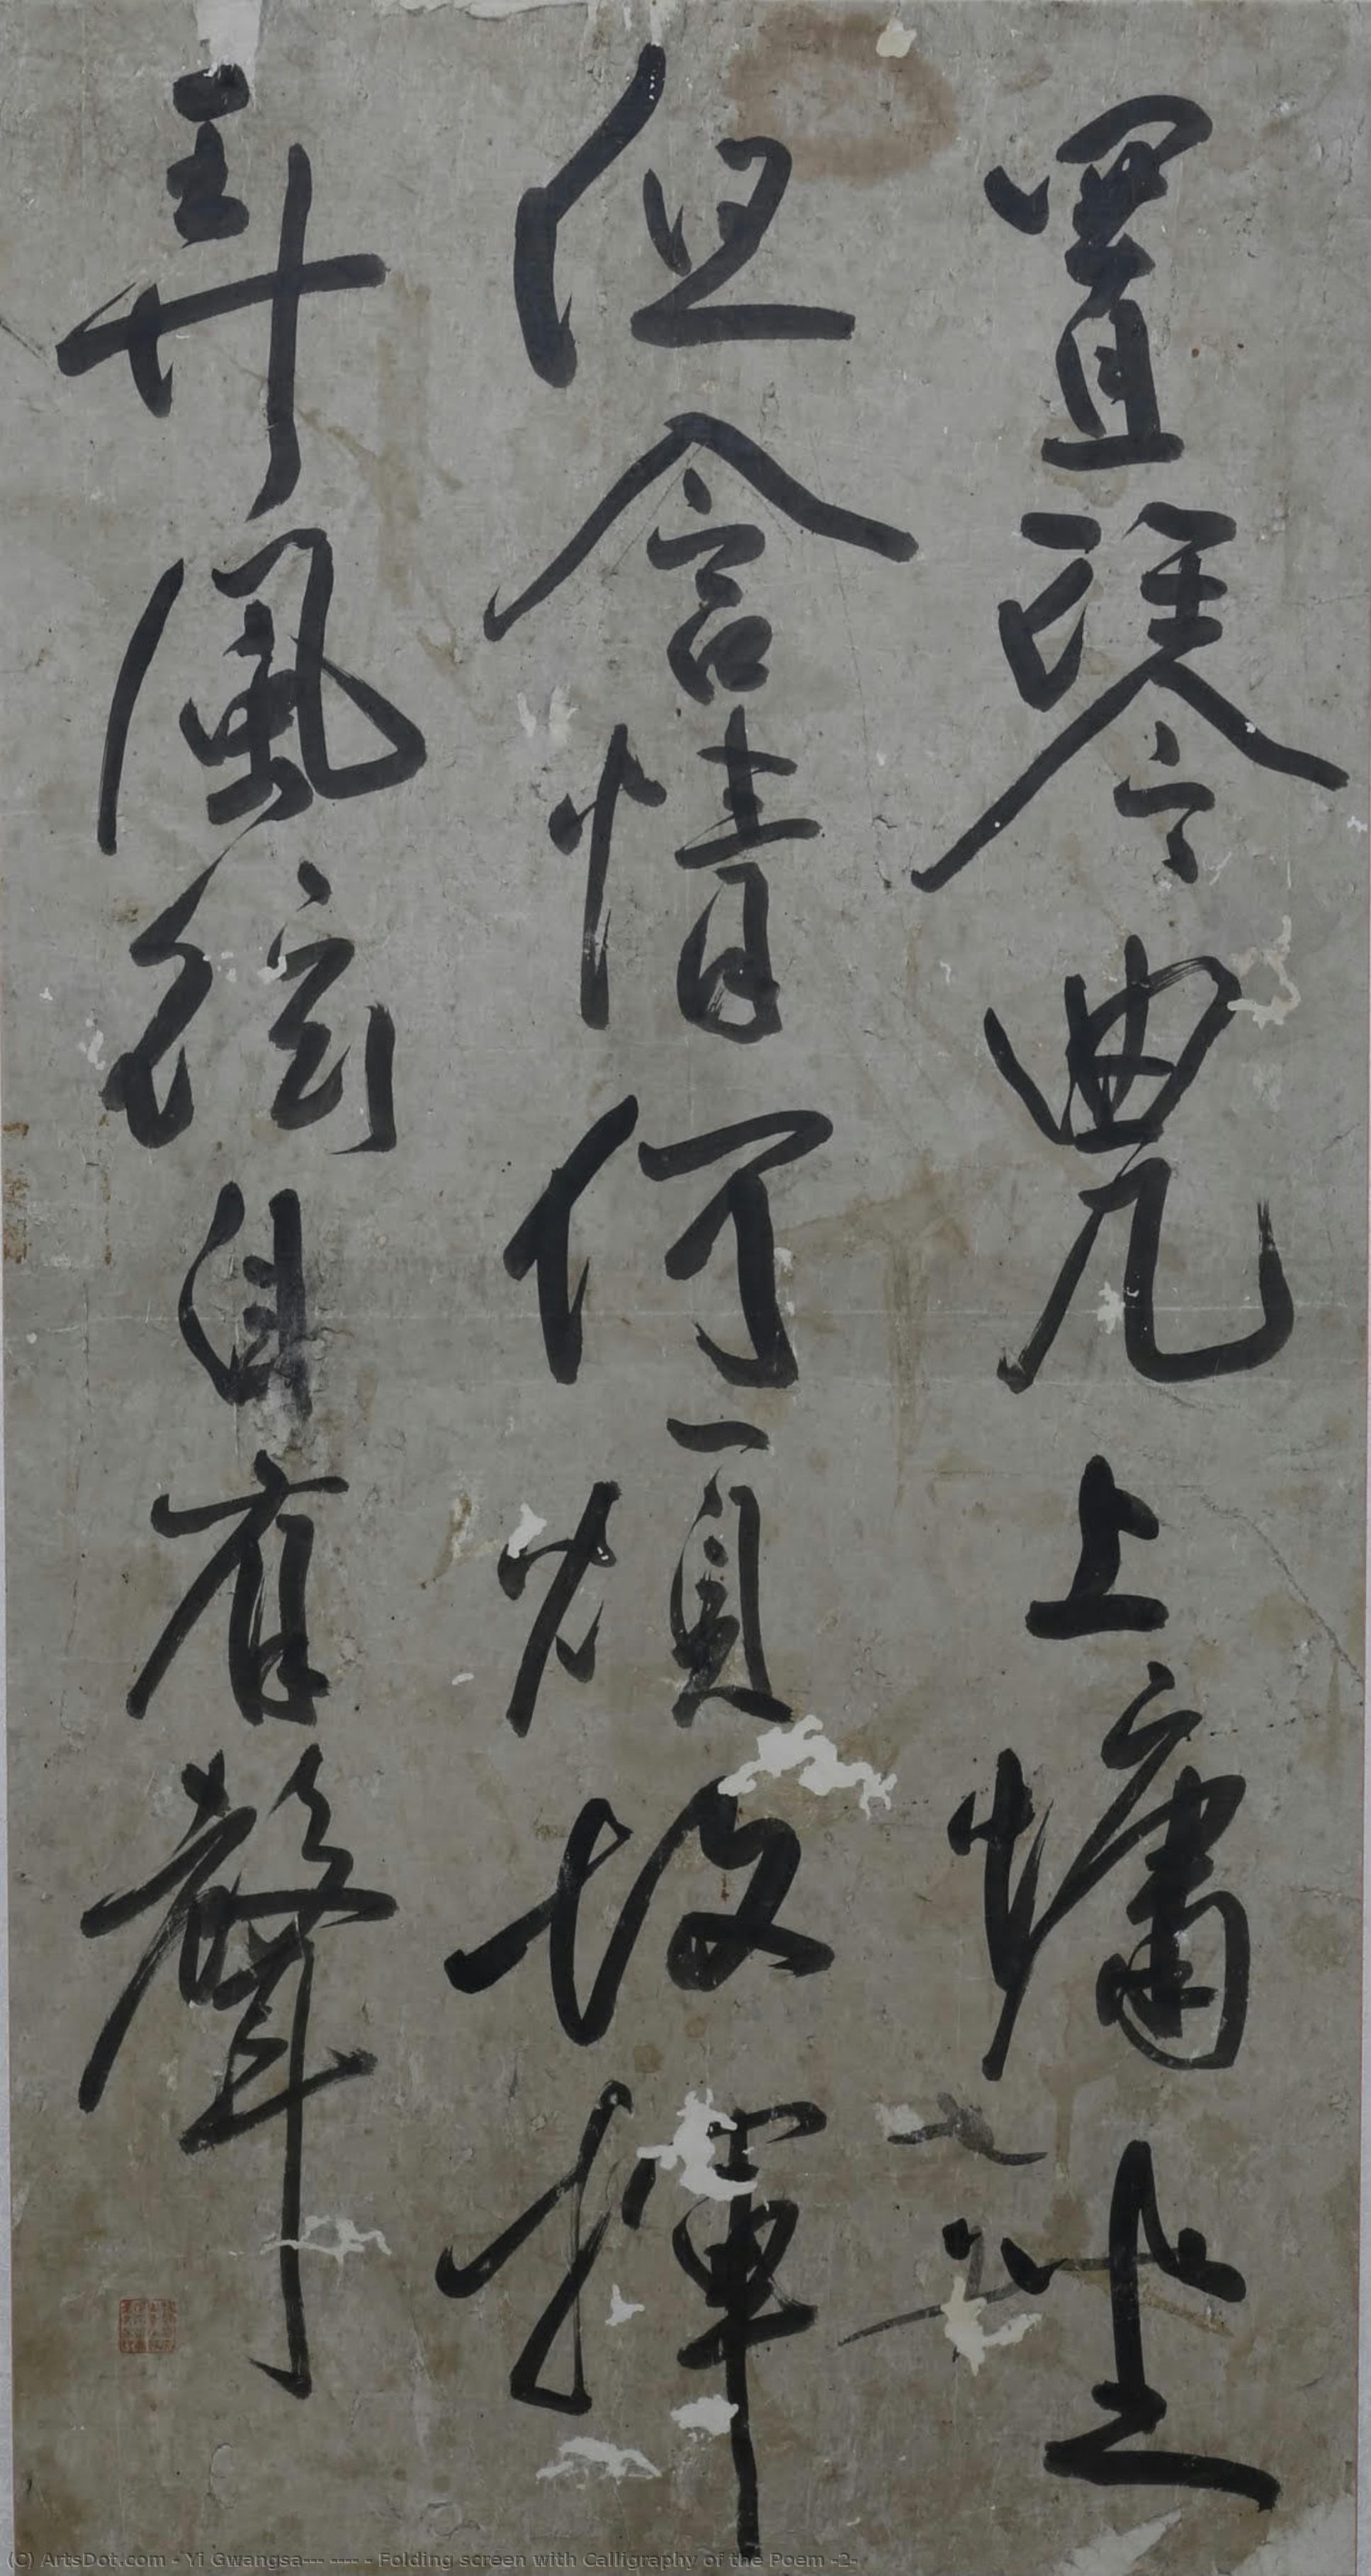 置琴曲几上慵坐
但含情何煩故揮
弄風絃自有聲
(C) ArtsDot.com - Yi Gwangsa--- ---- - Folding screen with Calligraphy of the Poem -2-